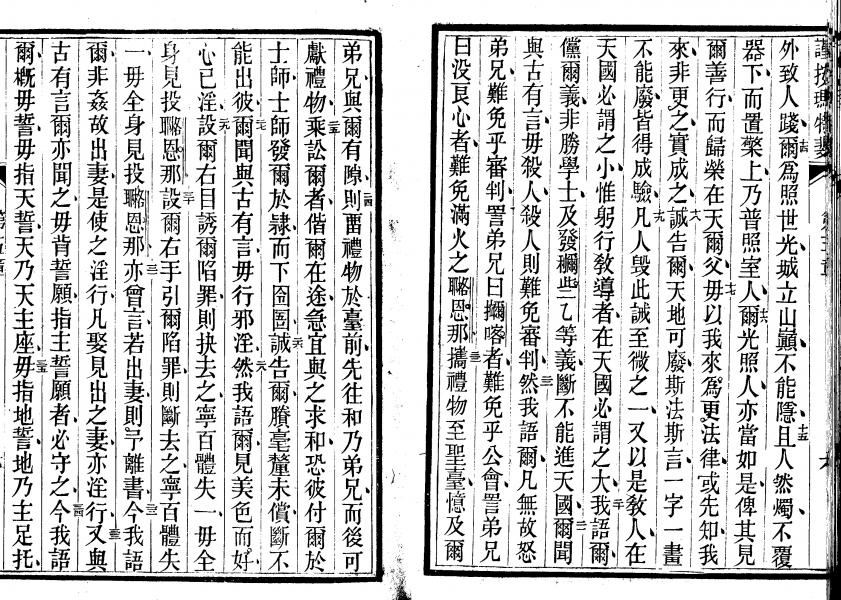 外致人踐爾爲照世光城立山巔不能隱且人然燭不覆
器下而置檠上乃普照室人爾光照人亦當如是俾其見
爾善行而歸榮在天爾父毋以我來爲更法律或先知我
來非更之實成之誠告爾天地可廢斯法斯言一字一畫
不能廢皆得成驗凡人毀此誡至微之一又以是敎人在
天國必謂之小惟躬行敎導者在天國必謂之大我語爾
儻爾義非勝學士及發穪㘉乙等義斷不能進天國爾聞
與古有言毋殺人殺人則難免審判然我語爾凡無故怒
弟兄難免乎審判詈弟兄曰擟喀者難免乎公會詈弟兄
曰没良心者難免滿火之𠴨恩那攜禮物至聖臺憶及爾
弟兄與爾有隙則畱禮物於臺前先往和乃弟兄而後可
獻禮物乘訟爾者偕爾在途急宜與之求和恐彼付爾於
士師士師發爾於隷而下囹圄誠告爾賸毫釐未償斷不
能出彼爾聞與古有言毋行邪淫然我語爾見美色而好
心已淫設爾右目誘爾陷罪則抉去之寧百體失一毋全
身見投𠴨恩那設爾右手引爾陷罪則斷去之寧百體失
一毋全身見投𠴨恩那亦曾言若出妻則予離書今我語
爾非姦故出妻是使之淫行凡娶見出之妻亦淫行又與
古有言爾亦聞之毋背誓願指主誓願者必守之今我語
爾槪毋誓毋指天誓天乃天主座毋指地誓地乃主足托